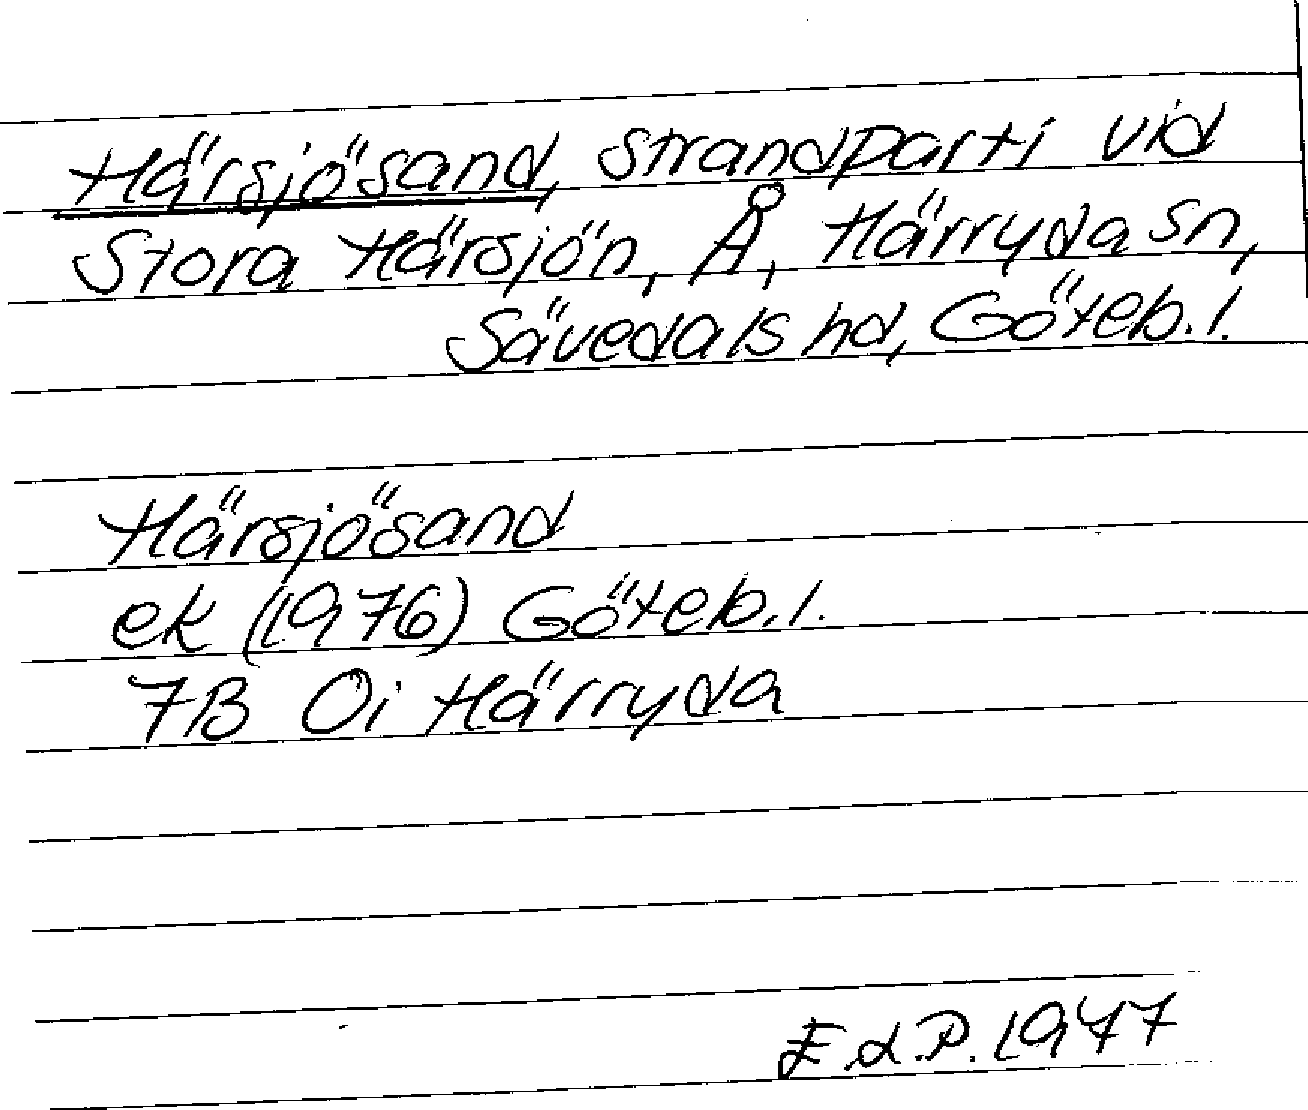 Härsjösand, strandparti vid
Stora Härsjön, Å, Härryda sn,
Sävedals hd, Göteb. l.
Härsjösand
ek (1976) Göteb. l.
7B 0i Härryda
E.d.P. 1977